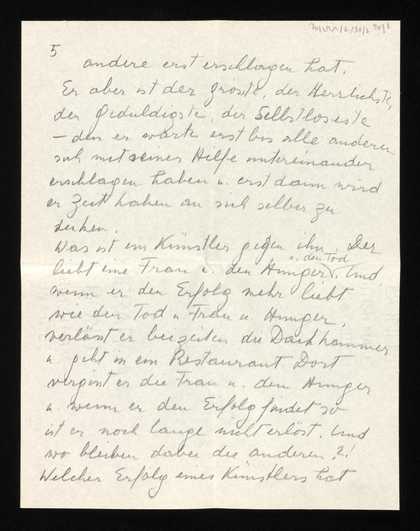 5
andere erst erschlagen hat.
Er aber ist der grösste, der Herrlichste,
der Geduldigste, der Selbstloseste
– den er wartet erst bis alle anderen
sich mit seiner Hilfe untereinander
erschlagen haben u. erst dann wird
er Zeit haben an sich selber zu
denken.
Was ist ein Künstler gegen ihn. Der
liebt eine Frau u. den Hunger u. den Tod. Und
wenn er den Erfolg mehr liebt
wie den Tod u Frau u Hunger,
verlässt er beizeiten die Dachkammer
u. geht in ein Restaurant Dort
vergisst er die Frau u. den Hunger
u. wenn er den Erfolg findet so
ist er noch lange nicht erlöst. Und
wo bleiben dabei die anderen?!
Welcher Erfolg eines Künstlers hat